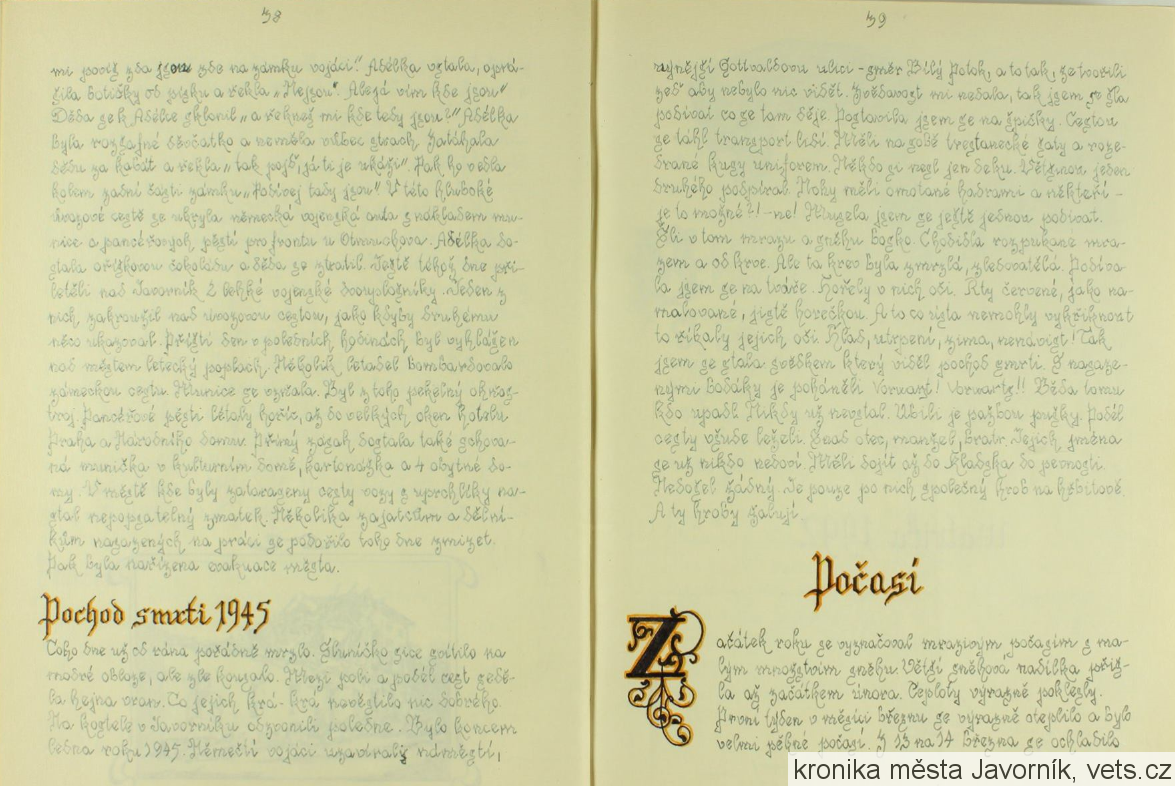 38
mi povíš zda jsou zde na zámku vojáci." Adélka vstala, oprá-
šila botičky od písku a řekla „Nejsou". Ale já vím kde jsou"
Děda se k Adélce sklonil „a řekneš mi kde tedy jsou?" Adélka
byla rozšafné děvčátko a neměla vůbec strach. Zatáhala
dědu za kabát a řekla „tak pojď, já ti je ukáži". Pak ho vedla
kolem zadní části zámku „Podívej tady jsou" V této hluboké
úvozové cestě se ukryla německá vojenská auta s nákladem mu-
nice a pancéřových pěstí pro frontu u Otmuchova. Adélka do-
stala oříškovou čokoládu a děda se ztratil. Ještě téhož dne při-
letěli nad Javorník 2 lehké vojenské dvouplošníky. Jeden z
nich zakroužil nad úvozovou cestou, jako kdyby druhému
něco ukazoval. Příští den v poledních hodinách byl vyhlášen
nad městem letecký poplach. Několik letadel bombardovalo
zámeckou cestu. Munice se vznala. Byl z toho pekelný ohňos-
troj. Pancéřové pěsti létaly hoříc, až do velkých oken hotelu
Praha a Národního domu. Přímý zásah dostala také schova-
ná munička v kulturním domě, kartonážka a 4 obytné do-
my. V městě kde byly zataraseny cesty vozy s uprchlíky na-
stal nepopsatelný zmatek. Několika zajatcům a dělní-
kům nasazených na práci se podařilo toho dne zmizet.
Pak byla nařízena evakuace města.
Pochod smrti 1945
Toho dne už od rána pořádně mrzlo. Sluníčko sice svítilo na
modré obloze, ale zle kousalo. Mezi poli a podél cest sedě-
la hejna vran. Co jejich krá- krá nevěstilo nic dobrého.
Na kostele v Javorníku odzvonili poledne. Bylo koncem
ledna roku 1945. Němečtí vojáci uzavírali náměstí,
39
nynější Gottvaldovu ulici - směr Bílý Potok, a to tak, že tvořili
zeď aby nebylo nic vidět. Zvědavost mi nedala, tak jsem se šla
podívat co se tam děje. Postavila jsem se na špičky. Cestou
se táhl transport lidí. Měli na sobě trestanecké šaty a roze-
drané kusy uniforem. Někdo si nesl jen deku. Většinou jeden
druhého podpíral. Nohy měli omotané hadrami a někteří -
je to možné?! - ne! Musela jsem se ještě jednou podívat.
Šli v tom mrazu a sněhu bosko. Chodidla rozpukané mra-
zem a od krve. Ale ta krev byla zmrzlá, zledovatělá. Podíva-
la jsem se na tváře. Hořely v nich oči. Rty červené, jako na-
malované, jistě horečkou. A to co ústa nemohly vykřiknout
to říkaly jejich oči. Hlad, utrpení, zima, nenávist! Tak
jsem se stala svědkem který viděl pochod smrti. S nasaze-
nými bodáky je poháněli Vorwart! Vorwarts!! Běda tomu
kdo upadl. Nikdy už nevstal. Ubili je pažbou pušky. Podél
cesty všude leželi. Snad otec, manžel, bratr. Jejich jména
se už nikdo nedoví. Měli dojít až do Kladzka do pevnosti.
Nedošel žádný. Je pouze po nich společný hrob na hřbitově.
A ty hroby žalují.
Počasí
Začátek roku se vyznačoval mrazivým počasím s ma-
lým množstvím sněhu. Větší sněhová nadílka přiš-
la až začátkem února. Teploty výrazně poklesly.
První týden v měsíci březnu se výrazně oteplilo a bylo
velmi pěkné počasí. Z 13 na 14 března se ochladilo
kronika města Javorník, vets.cz